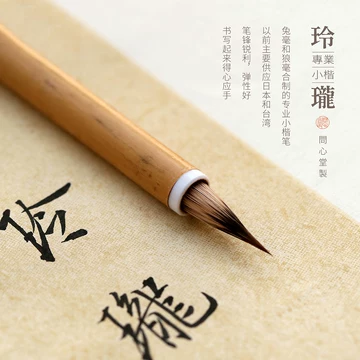 玲
專業
小楷
瓏
問心堂製
兔毫和狼毫合制的专业小楷笔
以前主要供应日本和台湾
笔锋锐利，弹性好
书写起来得心应手
玲
瓏